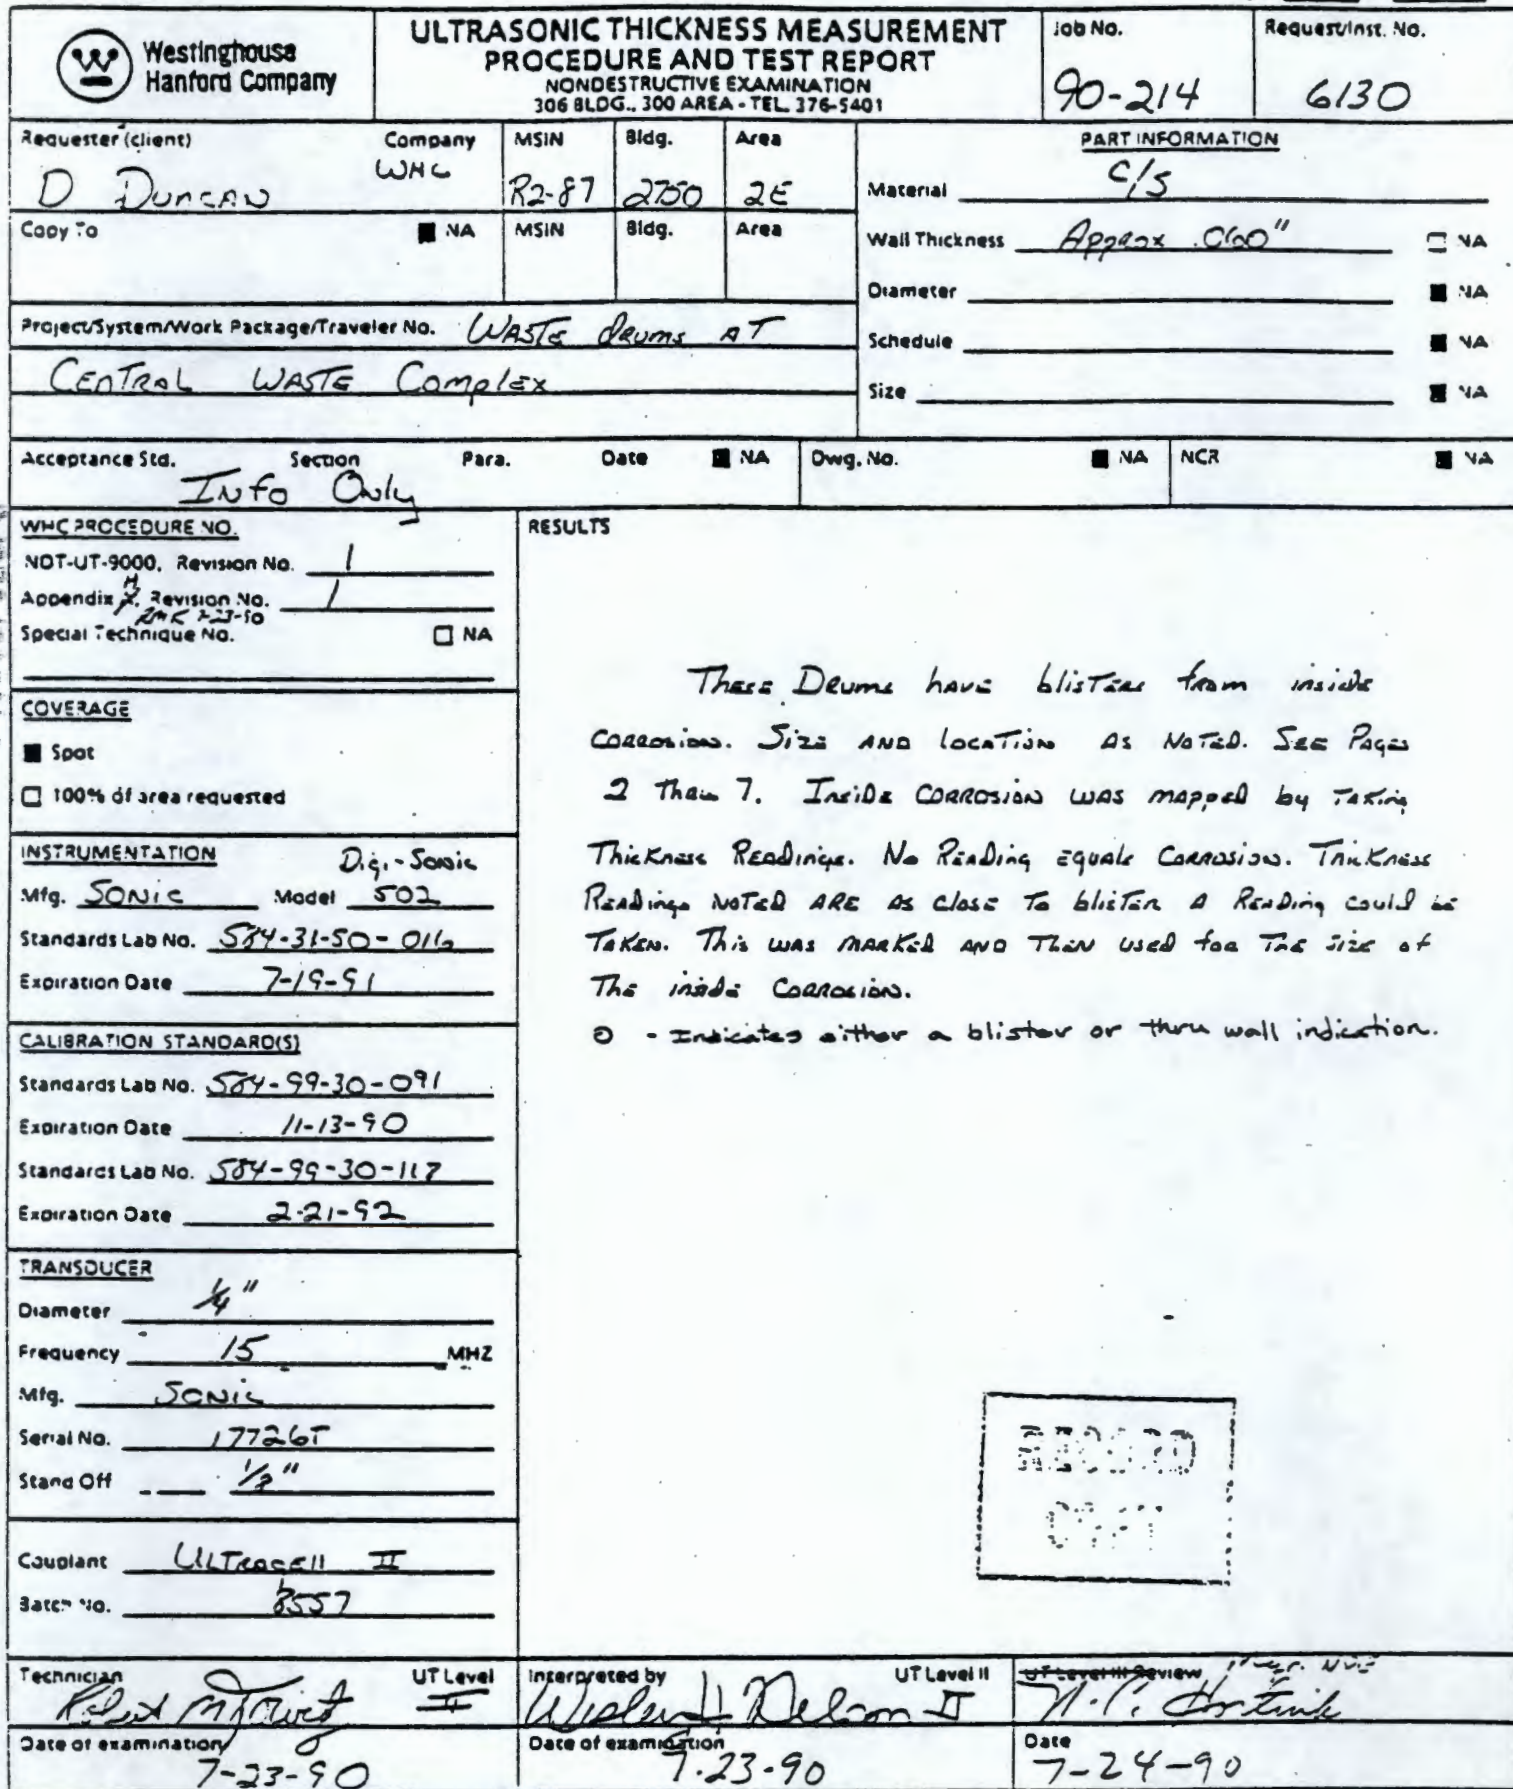 Westinghouse
Hanford Company
ULTRASONIC THICKNESS MEASUREMENT
PROCEDURE AND TEST REPORT
NONDESTRUCTIVE EXAMINATION
306 BLDG., 300 AREA - TEL. 376-5401
Job No.
90-214
Request/Inst. No.
6130
Requester (client)
D Duncan
Company
WHC
MSIN
R2-87
Bldg.
2750
Area
2E
Copy To
NA
MSIN
Bldg.
Area
PART INFORMATION
Material C/S
Wall Thickness Approx .060" NA
Diameter NA
Schedule NA
Size NA
Project/System/Work Package/Traveler No. Waste drums AT
Central Waste Complex
Acceptance Std. Section Para. Date NA
Info Only
Dwg. No. NA
NCR NA
WHC PROCEDURE NO.
NDT-UT-9000, Revision No. 1
Appendix H, Revision No. 1
7-23-90
Special Technique No. NA
COVERAGE
Spot
100% of area requested
INSTRUMENTATION Digi-Sonic
Mfg. Sonic Model 502
Standards Lab No. 584-31-50-016
Expiration Date 7-19-91
CALIBRATION STANDARD(S)
Standards Lab No. 584-99-30-091
Expiration Date 11-13-90
Standards Lab No. 584-99-30-117
Expiration Date 2-21-92
TRANSDUCER
Diameter 1/4"
Frequency 15 MHZ
Mfg. Sonic
Serial No. 17726T
Stand Off 1/2"
Couplant Ultragell II
Batch No. 8557
RESULTS
These Drums have blisters from inside
corrosion. Size and location as noted. See Pages
2 thru 7. Inside corrosion was mapped by taking
Thickness Readings. No Reading equals Corrosion. Thickness
Readings noted are as close to blister a Reading could be
taken. This was marked and then used for the size of
the inside Corrosion.
O - Indicates either a blister or thru wall indication.
RECORD
COPY
Technician
UT Level
II
Interpreted by
UT Level II
Wesley H Nelson II
UT Level III Review
Date of examination
7-23-90
Date of examination
7-23-90
Date
7-24-90